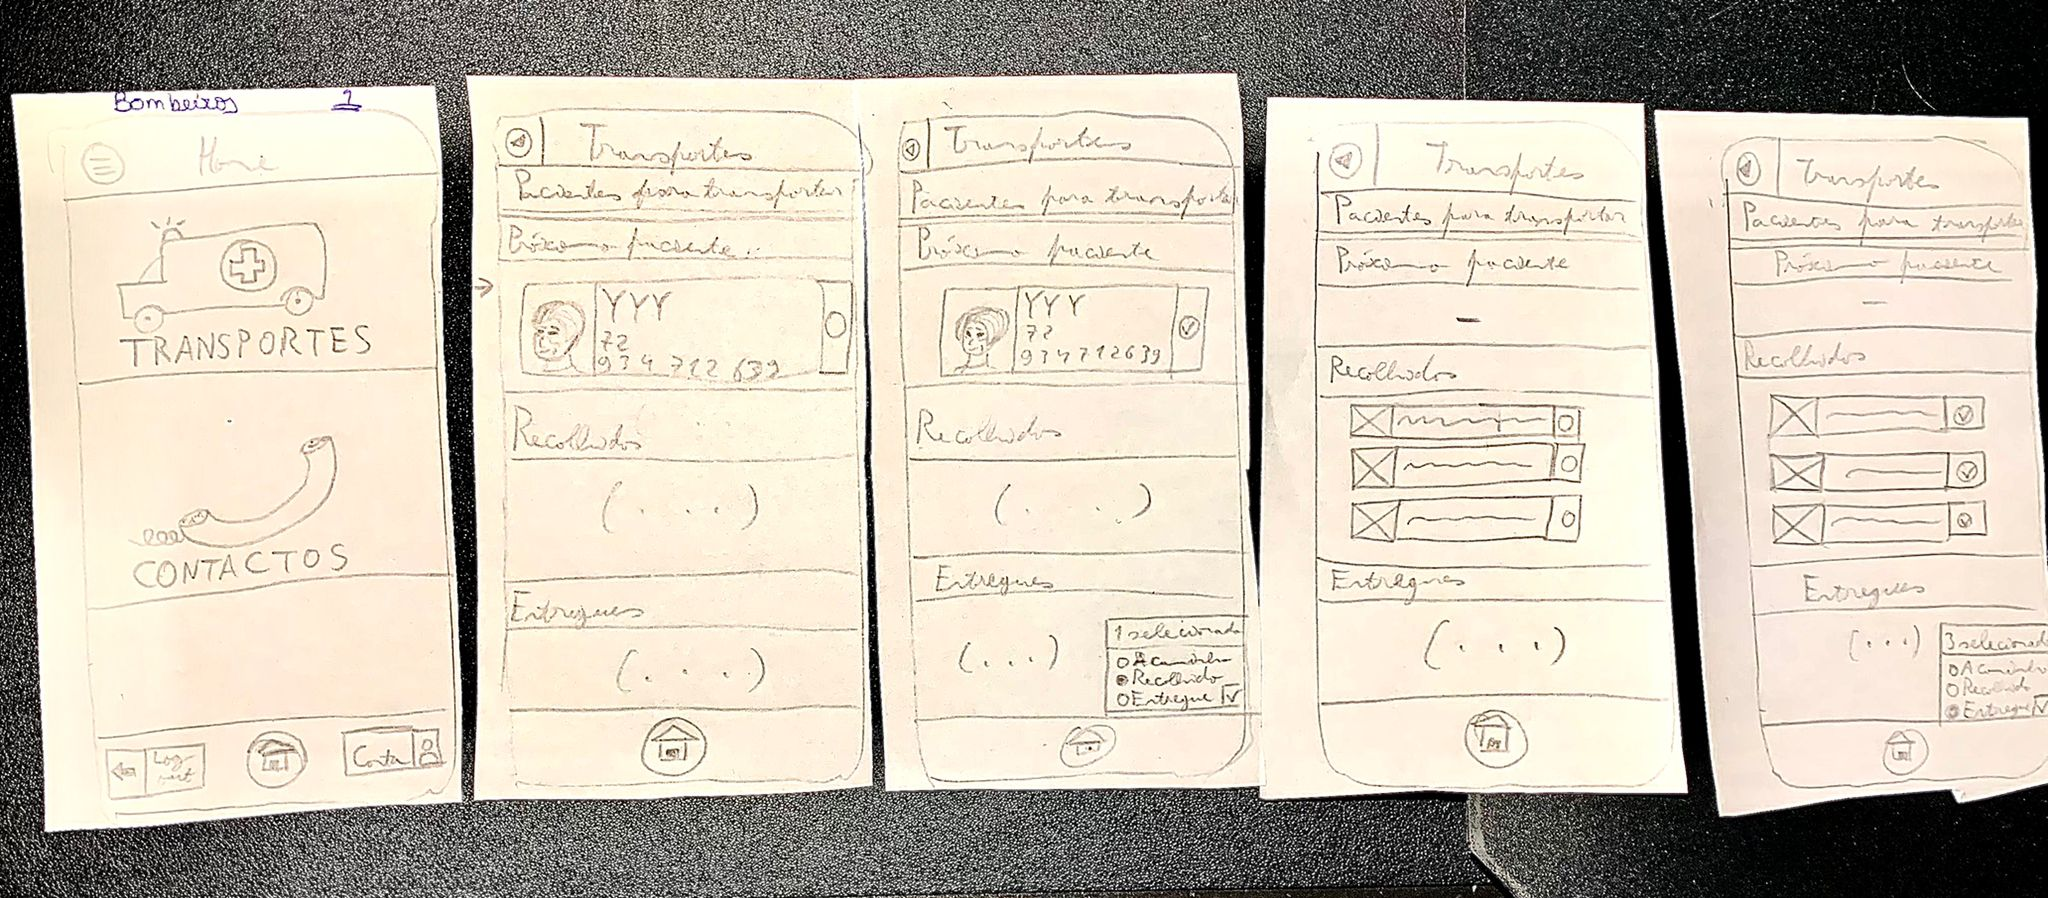 Bombeiros 1
Home
TRANSPORTES
CONTACTOS
Log out
Conta
Transportes
Pacientes para transportar:
Próximo paciente:
YYY
72
934 712 639
Recolhidos
(...)
Entregues
(...)
Transportes
Pacientes para transportar
Próximo paciente
YYY
72
934712639
Recolhidos
(...)
Entregues
(...)
1 selecionado
A caminho
Recolhido
Entregue
Transportes
Pacientes para transportar
Próximo paciente
-
Recolhidos
Entregues
(...)
Transportes
Pacientes para transportar
Próximo paciente
-
Recolhidos
Entregues
(...)
3 selecionado
A caminho
Recolhido
Entregue